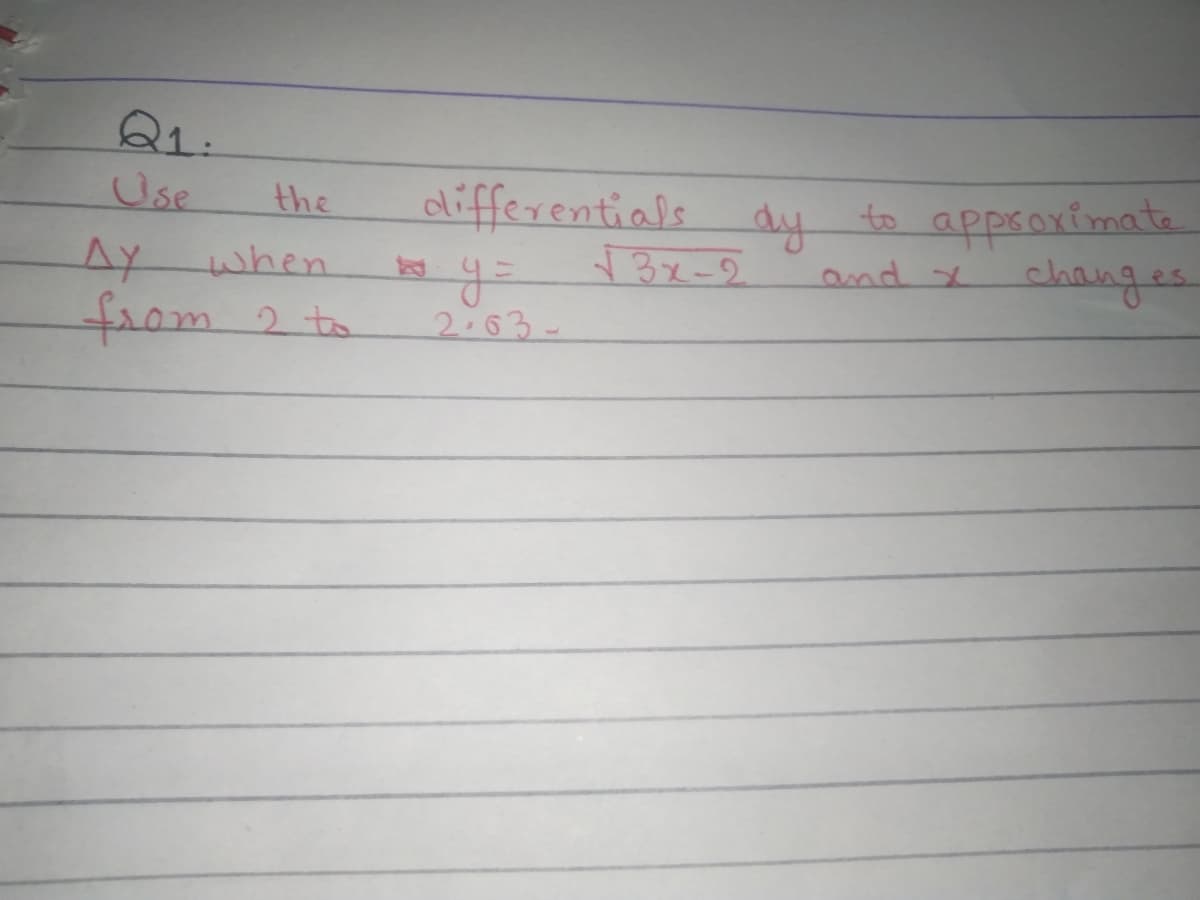 Q1:
Use the differentials dy to approximate
Δy when y = √3x-2 and x changes
from 2 to 2.03-